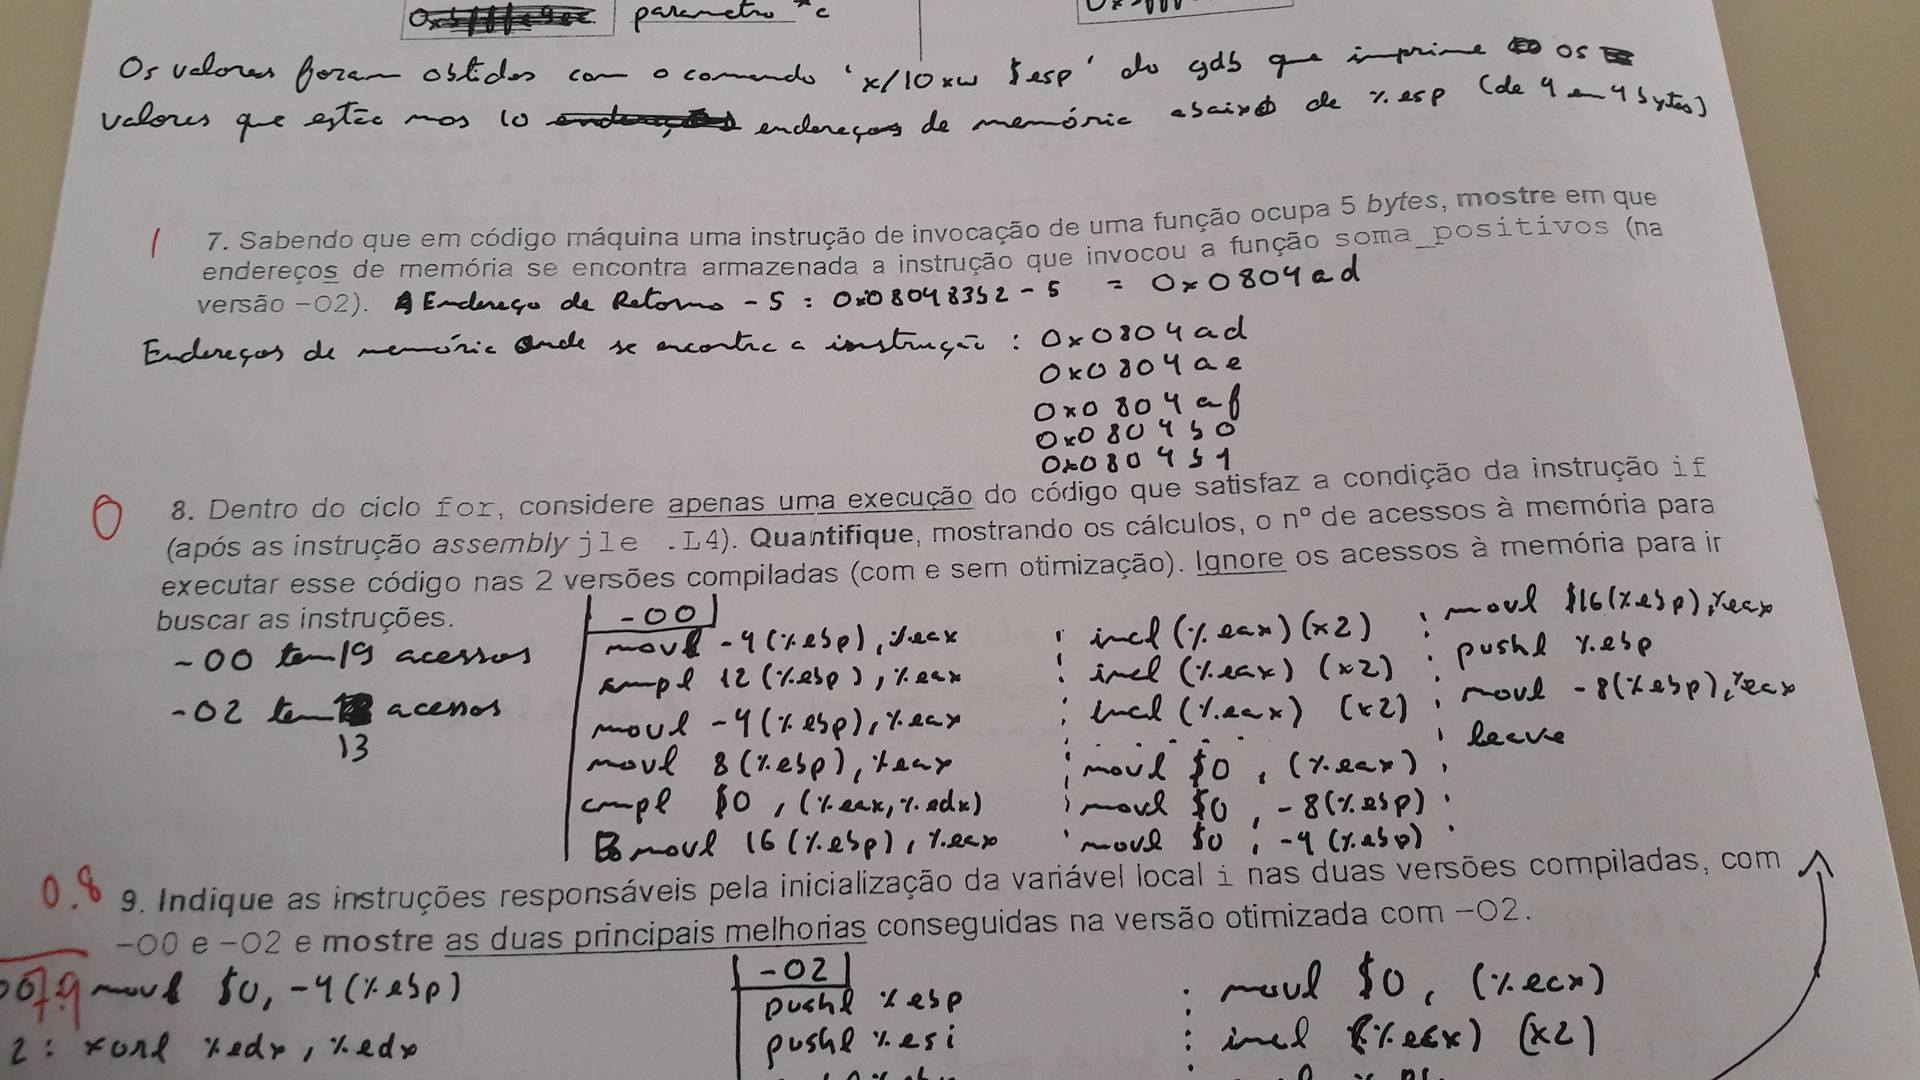 parametro *c
Os valores foram obtidos com o comando 'x/10xw $esp' do gdb que imprime os
valores que estão nos 10 endereços de memória abaixo de %esp (de 4 em 4 bytes)
1
7. Sabendo que em código máquina uma instrução de invocação de uma função ocupa 5 bytes, mostre em que
endereços de memória se encontra armazenada a instrução que invocou a função soma_positivos (na
versão -O2). Endereço de Retorno - 5 : 0x08048352 - 5 = 0x0804ad
Endereços de memória onde se encontra a instrução : 0x0804ad
0x0804ae
0x0804af
0x0804b0
0x0804b1
0
8. Dentro do ciclo for, considere apenas uma execução do código que satisfaz a condição da instrução if
(após as instrução assembly jle .L4). Quantifique, mostrando os cálculos, o nº de acessos à memória para
executar esse código nas 2 versões compiladas (com e sem otimização). Ignore os acessos à memória para ir
buscar as instruções.
-O0 tem 19 acessos
-O2 tem acessos
13
-O0
movl -4(%ebp), %eax
cmpl 12(%ebp), %eax
movl -4(%ebp), %eax
movl 8(%ebp), %eax
cmpl $0, (%eax,%edx)
movl 16(%ebp), %eax
incl (%eax) (x2)
incl (%eax) (x2)
incl (%eax) (x2)
movl $0, (%eax)
movl $0, -8(%ebp)
movl $0, -4(%ebp)
movl $16(%ebp), %eax
pushl %ebp
movl -8(%ebp), %eax
leave
0.8
9. Indique as instruções responsáveis pela inicialização da variável local i nas duas versões compiladas, com
-O0 e -O2 e mostre as duas principais melhorias conseguidas na versão otimizada com -O2.
movl $0, -4(%ebp)
2: xorl %edx, %edx
-O2
pushl %ebp
pushl %esi
movl $0, (%ecx)
incl (%ecx) (x2)